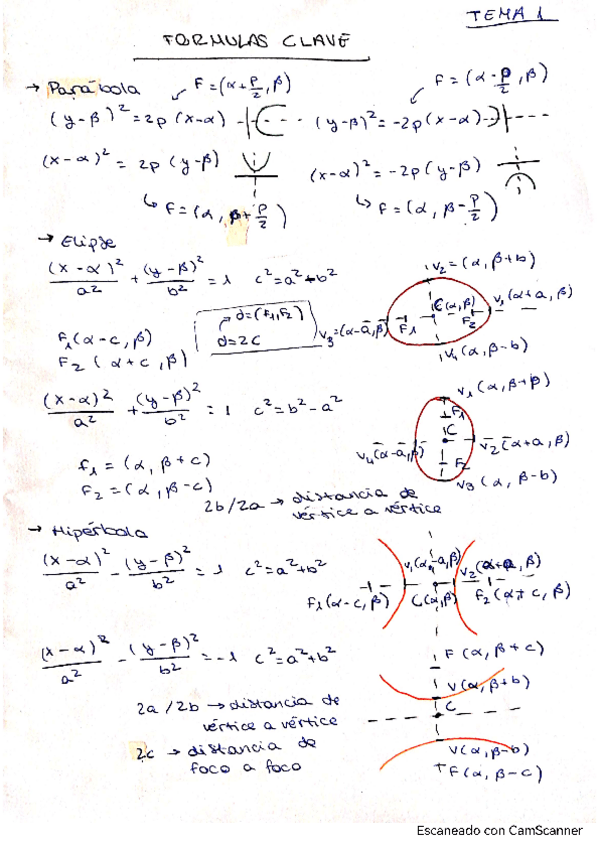 TEMA 1
FORMULAS CLAVE
→ Parábola
F=(α+p/2, β)
F=(α-p/2, β)
(y-β)²=2p(x-α)
(y-β)²=-2p(x-α)
(x-α)²=2p(y-β)
(x-α)²=-2p(y-β)
↳ F=(α, β+p/2)
↳ F=(α, β-p/2)
→ Elipse
(x-α)²/a² + (y-β)²/b² = 1 c²=a²+b²
V₂=(α, β+b)
C(α,β)
V₁(α+a, β)
F₁
F₂
V₃=(α-a,β)
V₄(α, β-b)
F₁(α-c, β)
F₂(α+c, β)
d=(F₁,F₂)
d=2c
(x-α)²/a² + (y-β)²/b² = 1 c²=b²-a²
V₁(α, β+β)
F₁
C
V₂(α+a, β)
V₄(α-a,β)
F₂
V₃(α, β-b)
f₁=(α, β+c)
F₂=(α, β-c)
2b/2a → distancia de
vértice a vértice
→ Hipérbola
(x-α)²/a² - (y-β)²/b² = 1 c²=a²+b²
V₁(α-a,β)
V₂(α+a, β)
F₁(α-c, β)
C(α,β)
F₂(α+c, β)
(x-α)²/a² - (y-β)²/b² = -1 c²=a²+b²
F(α, β+c)
V(α, β+b)
C
V(α, β-b)
F(α, β-c)
2a/2b → distancia de
vértice a vértice
2c → distancia de
foco a foco
Escaneado con CamScanner